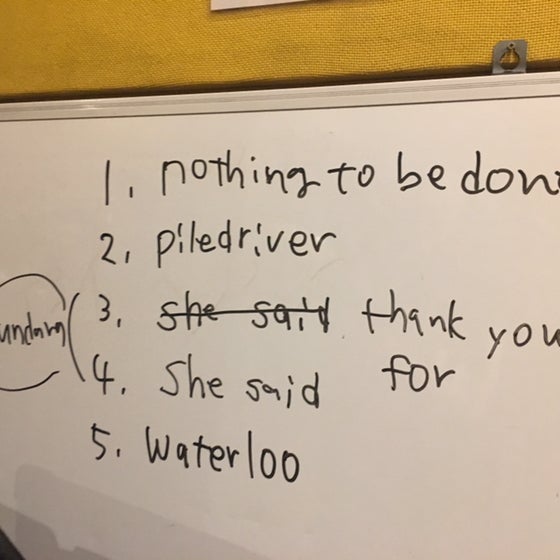 1. nothing to be don
2. piledriver
3. she said thank you
4. She said for
5. Waterloo